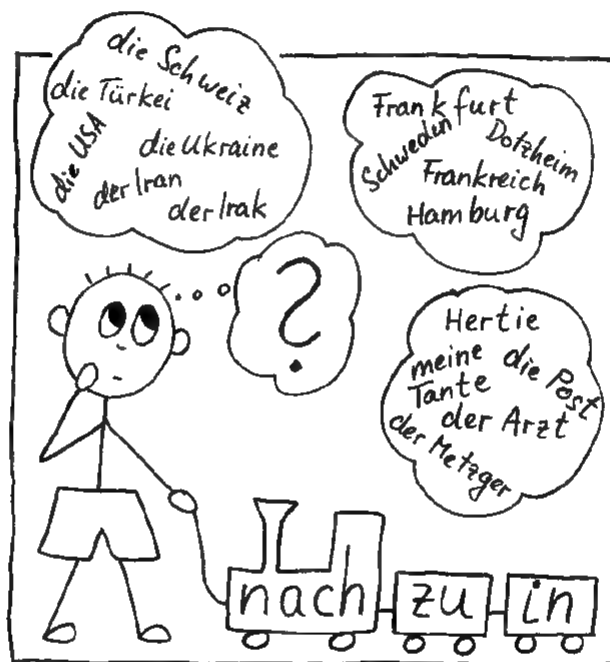 die Schweiz
die Türkei
die USA
die Ukraine
der Iran
der Irak
Frankfurt
Schweden
Dotzheim
Frankreich
Hamburg
?
Hertie
meine Tante
die Post
der Arzt
der Metzger
nach zu in